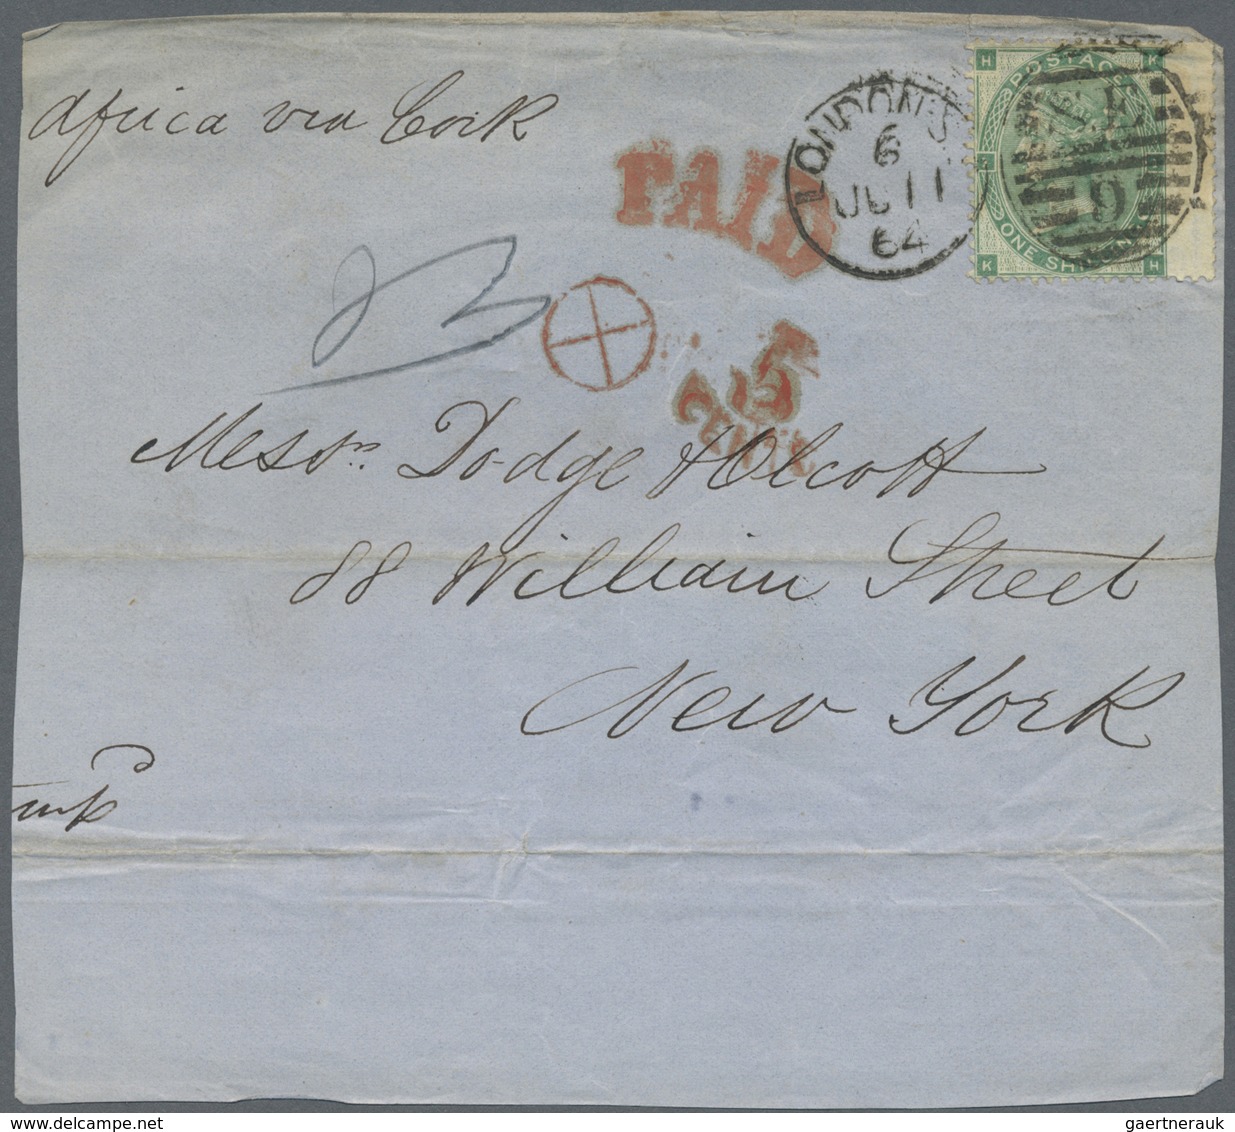 Africa via Cork
PAID
LONDON·S
6
JU 11
64
H K
POSTAGE
ONE SHILLING
K H
5
CENTS
Messrs. Dodge & Olcott
88 William Street
New York
gaertnerauk